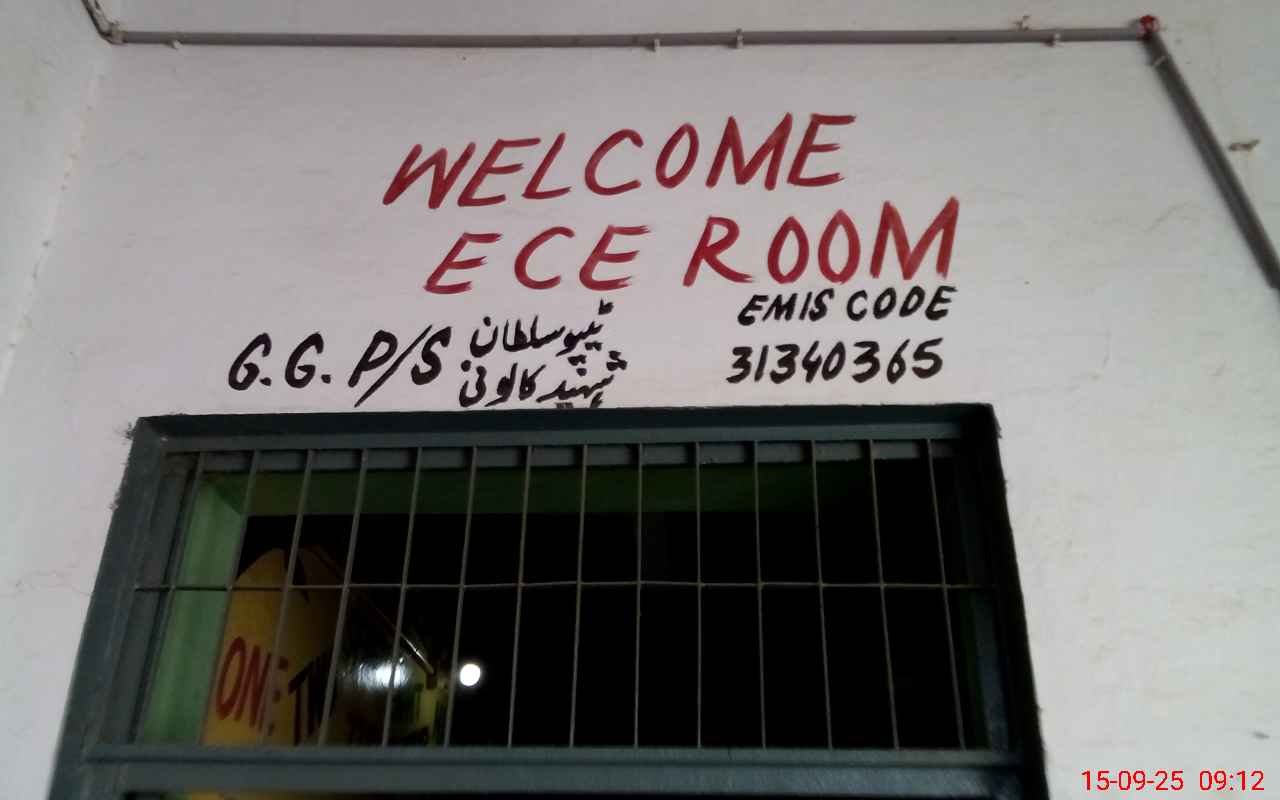 WELCOME
ECE ROOM
EMIS CODE
31340365
G.G. P/S ٹیپو سلطان
شہید کالونی
ONE
15-09-25 09:12